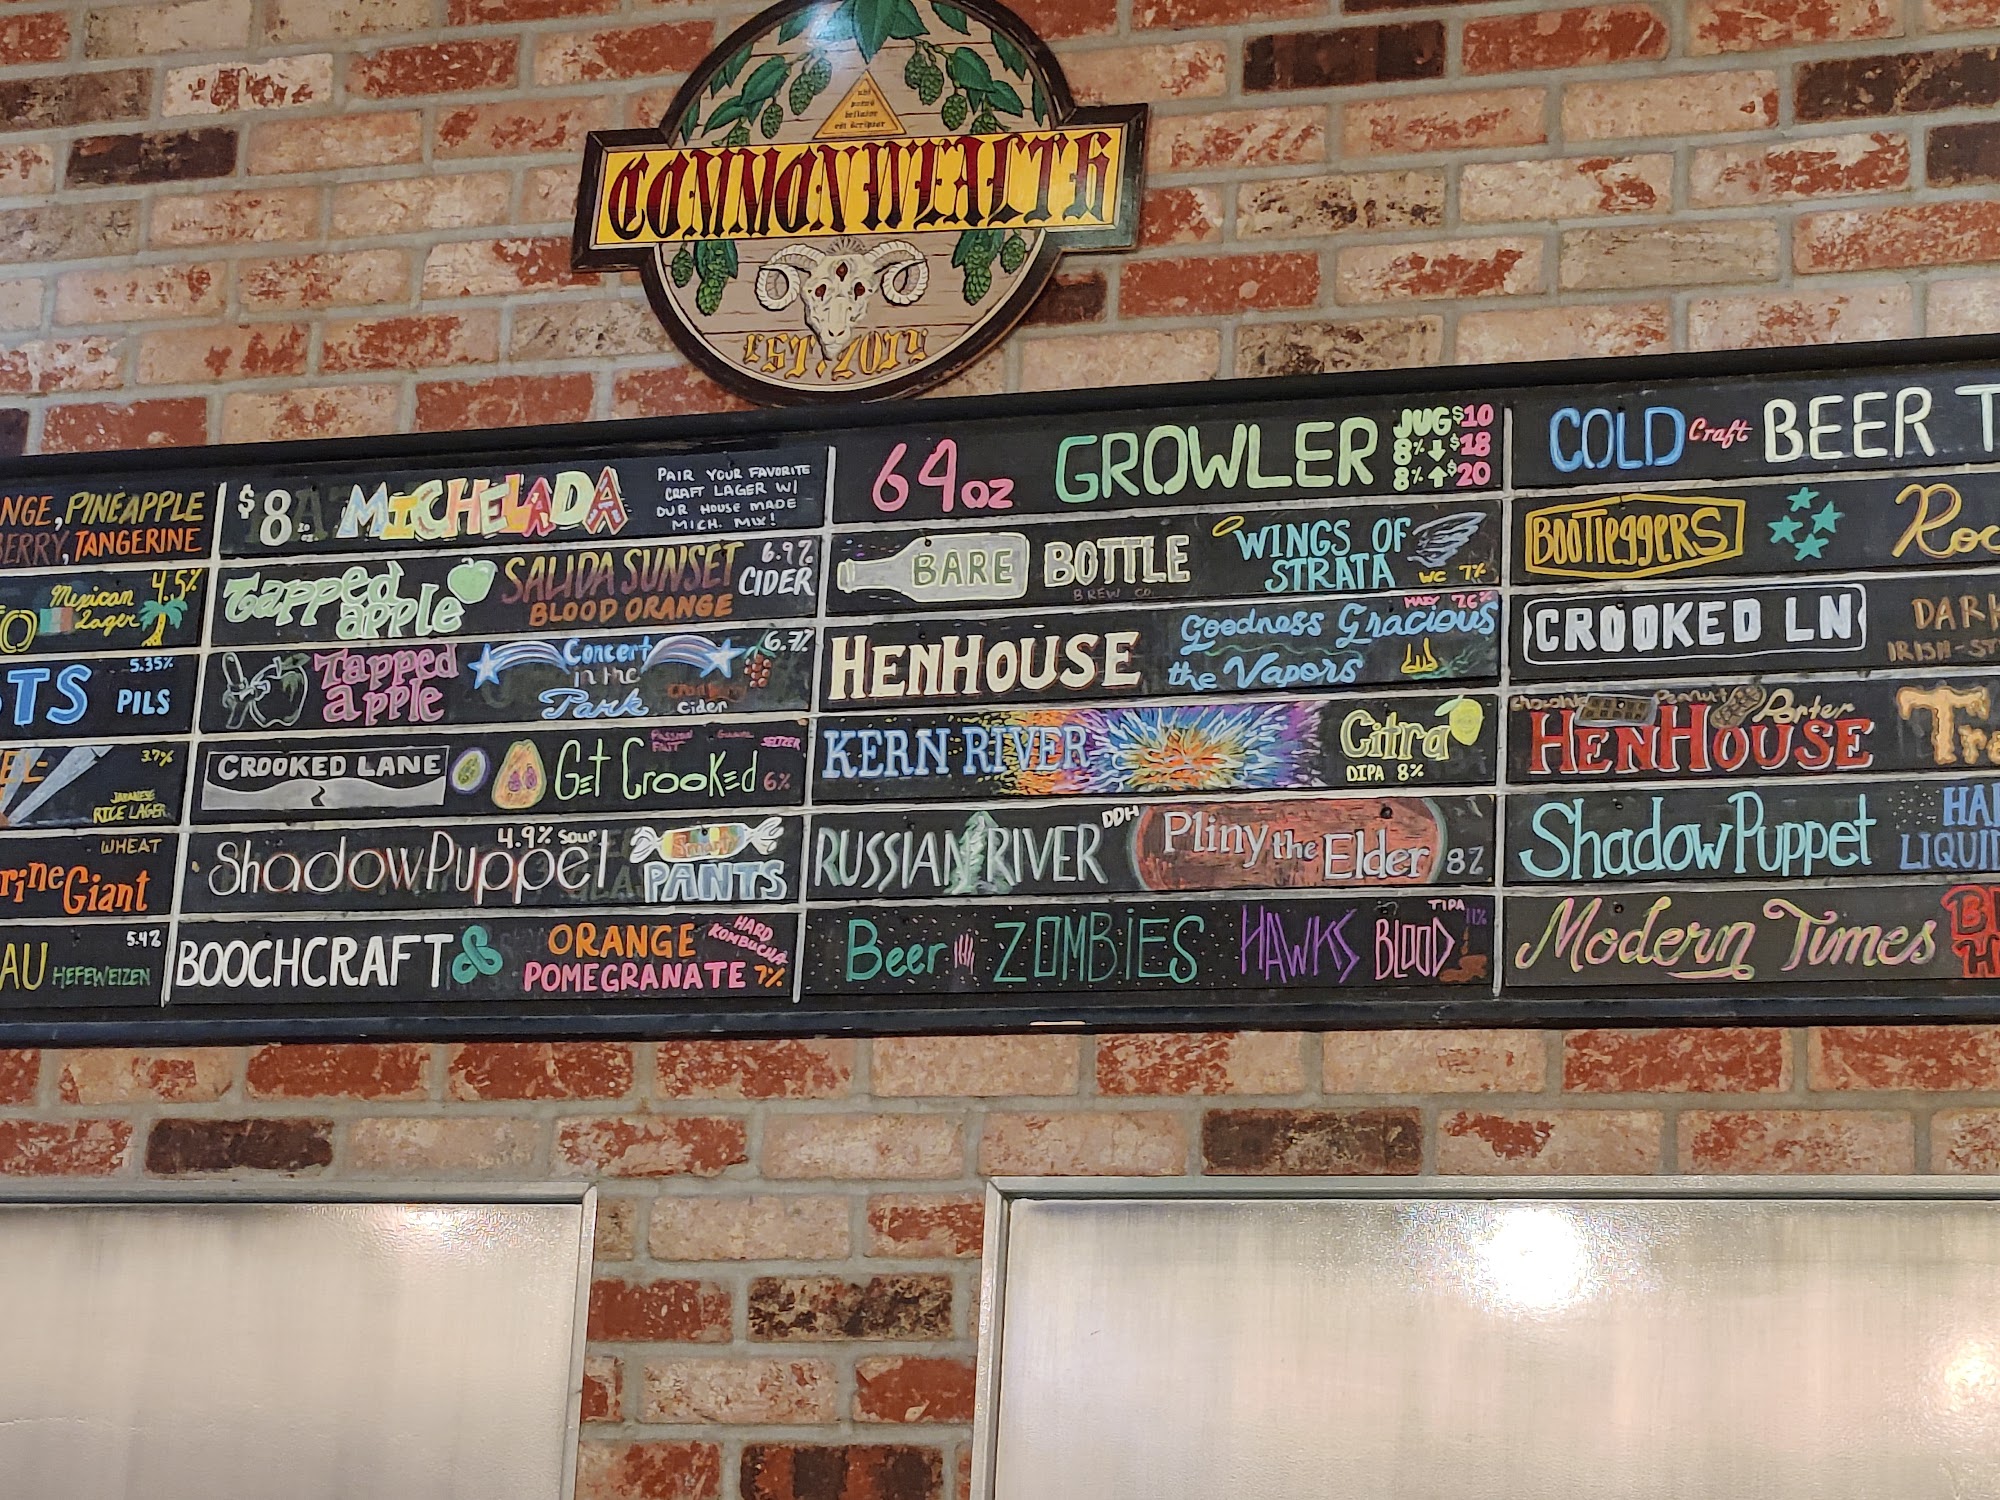 COMMONWEALTH
EST. 2014
NGE, PINEAPPLE
BERRY, TANGERINE
Mexican Lager 4.5%
TS 5.35% PILS
3.7%
JAPANESE RICE LAGER
WHEAT
rine Giant
AU 5.4% HEFEWEIZEN
$8 MICHELADA
PAIR YOUR FAVORITE
CRAFT LAGER W/
OUR HOUSE MADE
MICH. MIX!
Tapped apple SALIDA SUNSET BLOOD ORANGE 6.9% CIDER
Tapped apple Concert in the Park 6.7% Cranberry Cider
CROOKED LANE Get Crooked PASSION FRUIT GUAVA SELTZER 6%
ShadowPuppet 4.9% Sour Smarty PANTS
BOOCHCRAFT ORANGE POMEGRANATE HARD KOMBUCHA 7%
64oz GROWLER
JUG $10
8% ↓ $18
8% ↑ $20
BARE BOTTLE BREW CO. WINGS OF STRATA WC 7%
HENHOUSE Goodness Gracious the Vapors HAZY 7.6%
KERN RIVER Citra DIPA 8%
RUSSIAN RIVER DDH Pliny the Elder 8%
Beer ZOMBiES HAWKS BLOOD TIPA 11%
COLD Craft BEER T
BOOTleggERS Roc
CROOKED LN DARK
IRISH-ST
Chocolate Peanut Porter
HENHOUSE Tra
ShadowPuppet HA
LIQUI
Modern Times